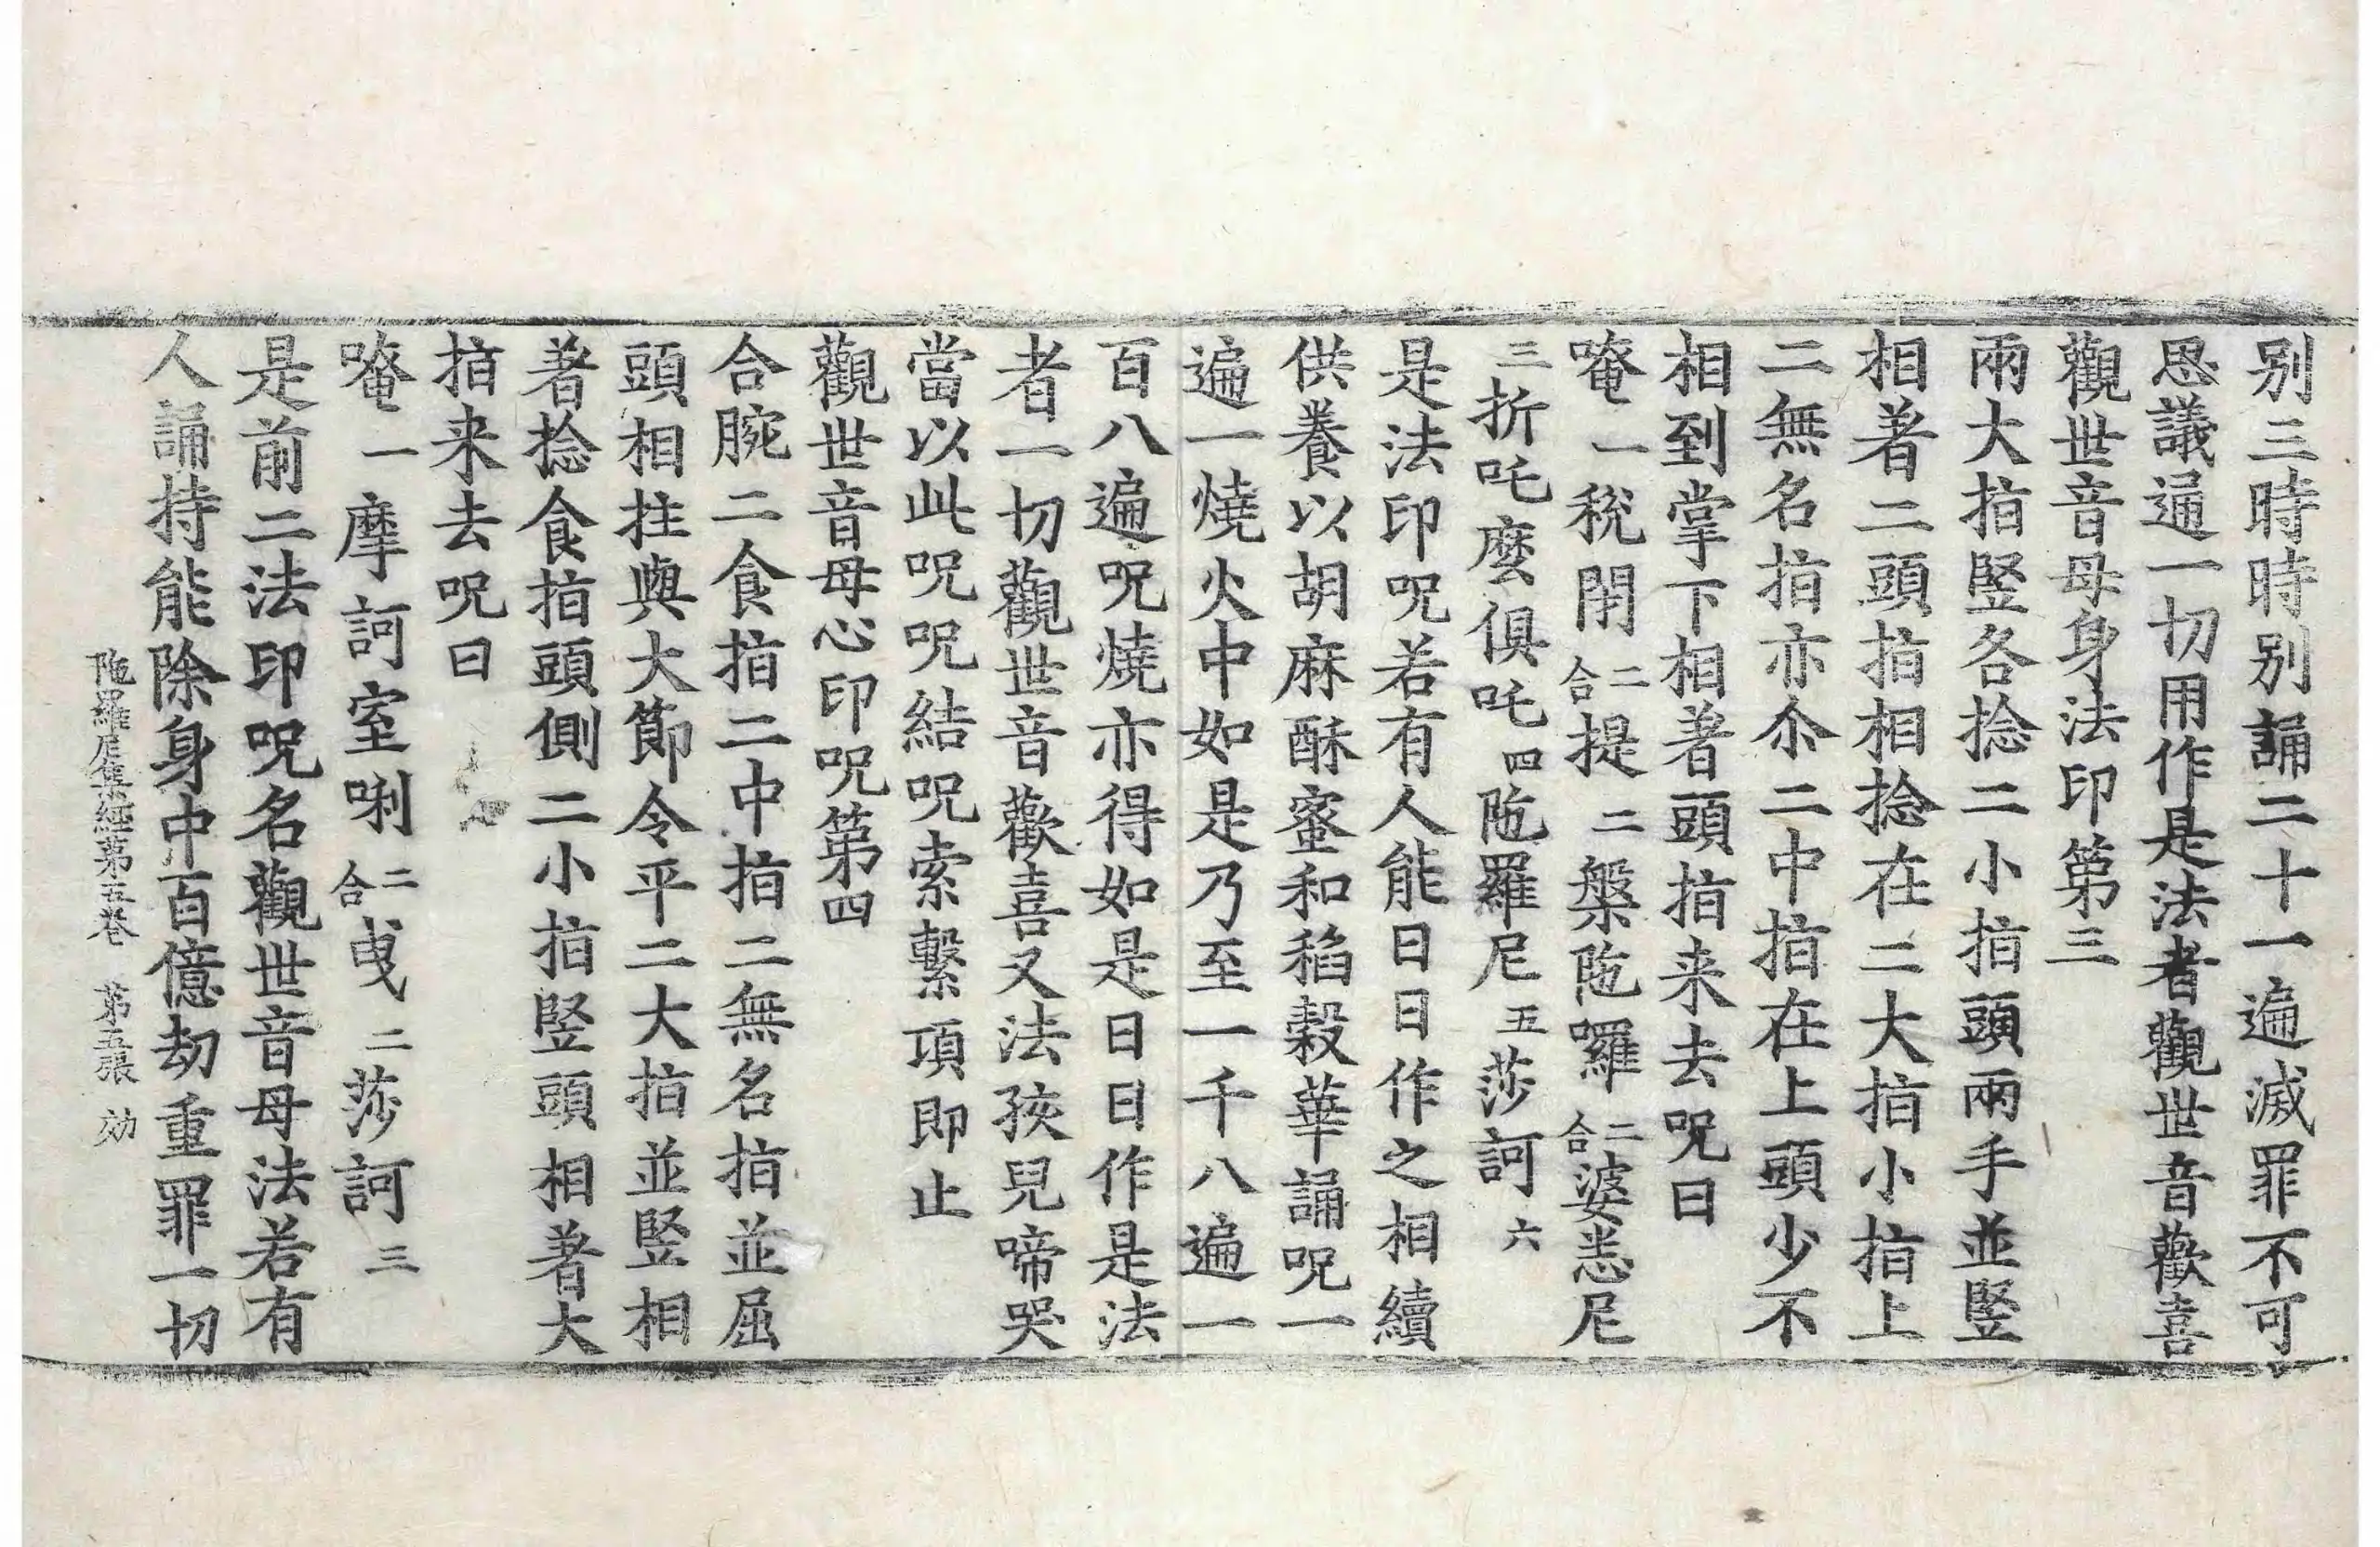 别三時時别誦二十一遍滅罪不可
思議遍一切用作是法者觀世音歡喜
觀世音母身法印第三
兩大指竪各捻二小指頭兩手並竪
相著二頭指相捻在二大指小指上
二無名指亦尒二中指在上頭少不
相到掌下相著頭指来去呪曰
唵一稅閇二合提二槃陁囉二合婆恙尼
三折吒麼俱吒四陁羅尼五莎訶六
是法印呪若有人能日日作之相續
供養以胡麻酥蜜和稻穀華誦呪一
遍一燒火中如是乃至一千八遍一
百八遍呪燒亦得如是日日作是法
者一切觀世音歡喜又法孩兒啼哭
當以此呪呪結呪索繫項即止
觀世音母心印呪第四
合腕二食指二中指二無名指並屈
頭相拄與大節令平二大指並竪相
著捻食指頭側二小指竪頭相著大
指来去呪曰
唵一摩訶室唎二合曳二莎訶三
是前二法印呪名觀世音母法若有
人誦持能除身中百億劫重罪一切
陁羅尼集經第五卷 第五張 効